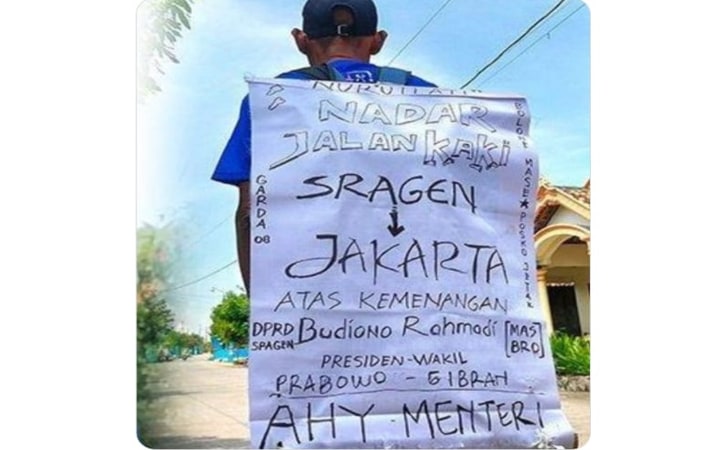 NADAR
JALAN KAKI
SRAGEN
↓
JAKARTA
ATAS KEMENANGAN
DPRD SRAGEN Budiono Rahmadi [MAS BRO]
PRESIDEN-WAKIL
PRABOWO - GIBRAN
AHY-MENTERI
GARDA 08
MASE★POSKO JETAK